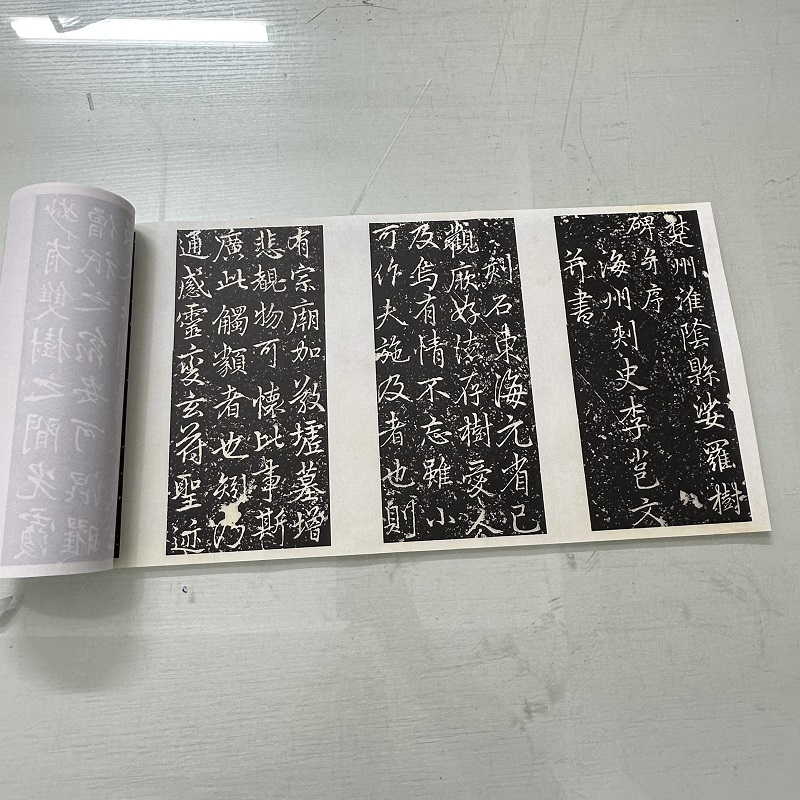 楚州淮陰縣娑羅樹
碑并序
海州刺史李邕文
并書
刻石東海元省已
觀厥好法存樹愛人
及烏有情不忘雖小
可作夫施及者也則
有宗廟加敬墟墓增
悲覩物可懷比事斯
廣此觸類者也矧乃
通感靈變玄符聖迹